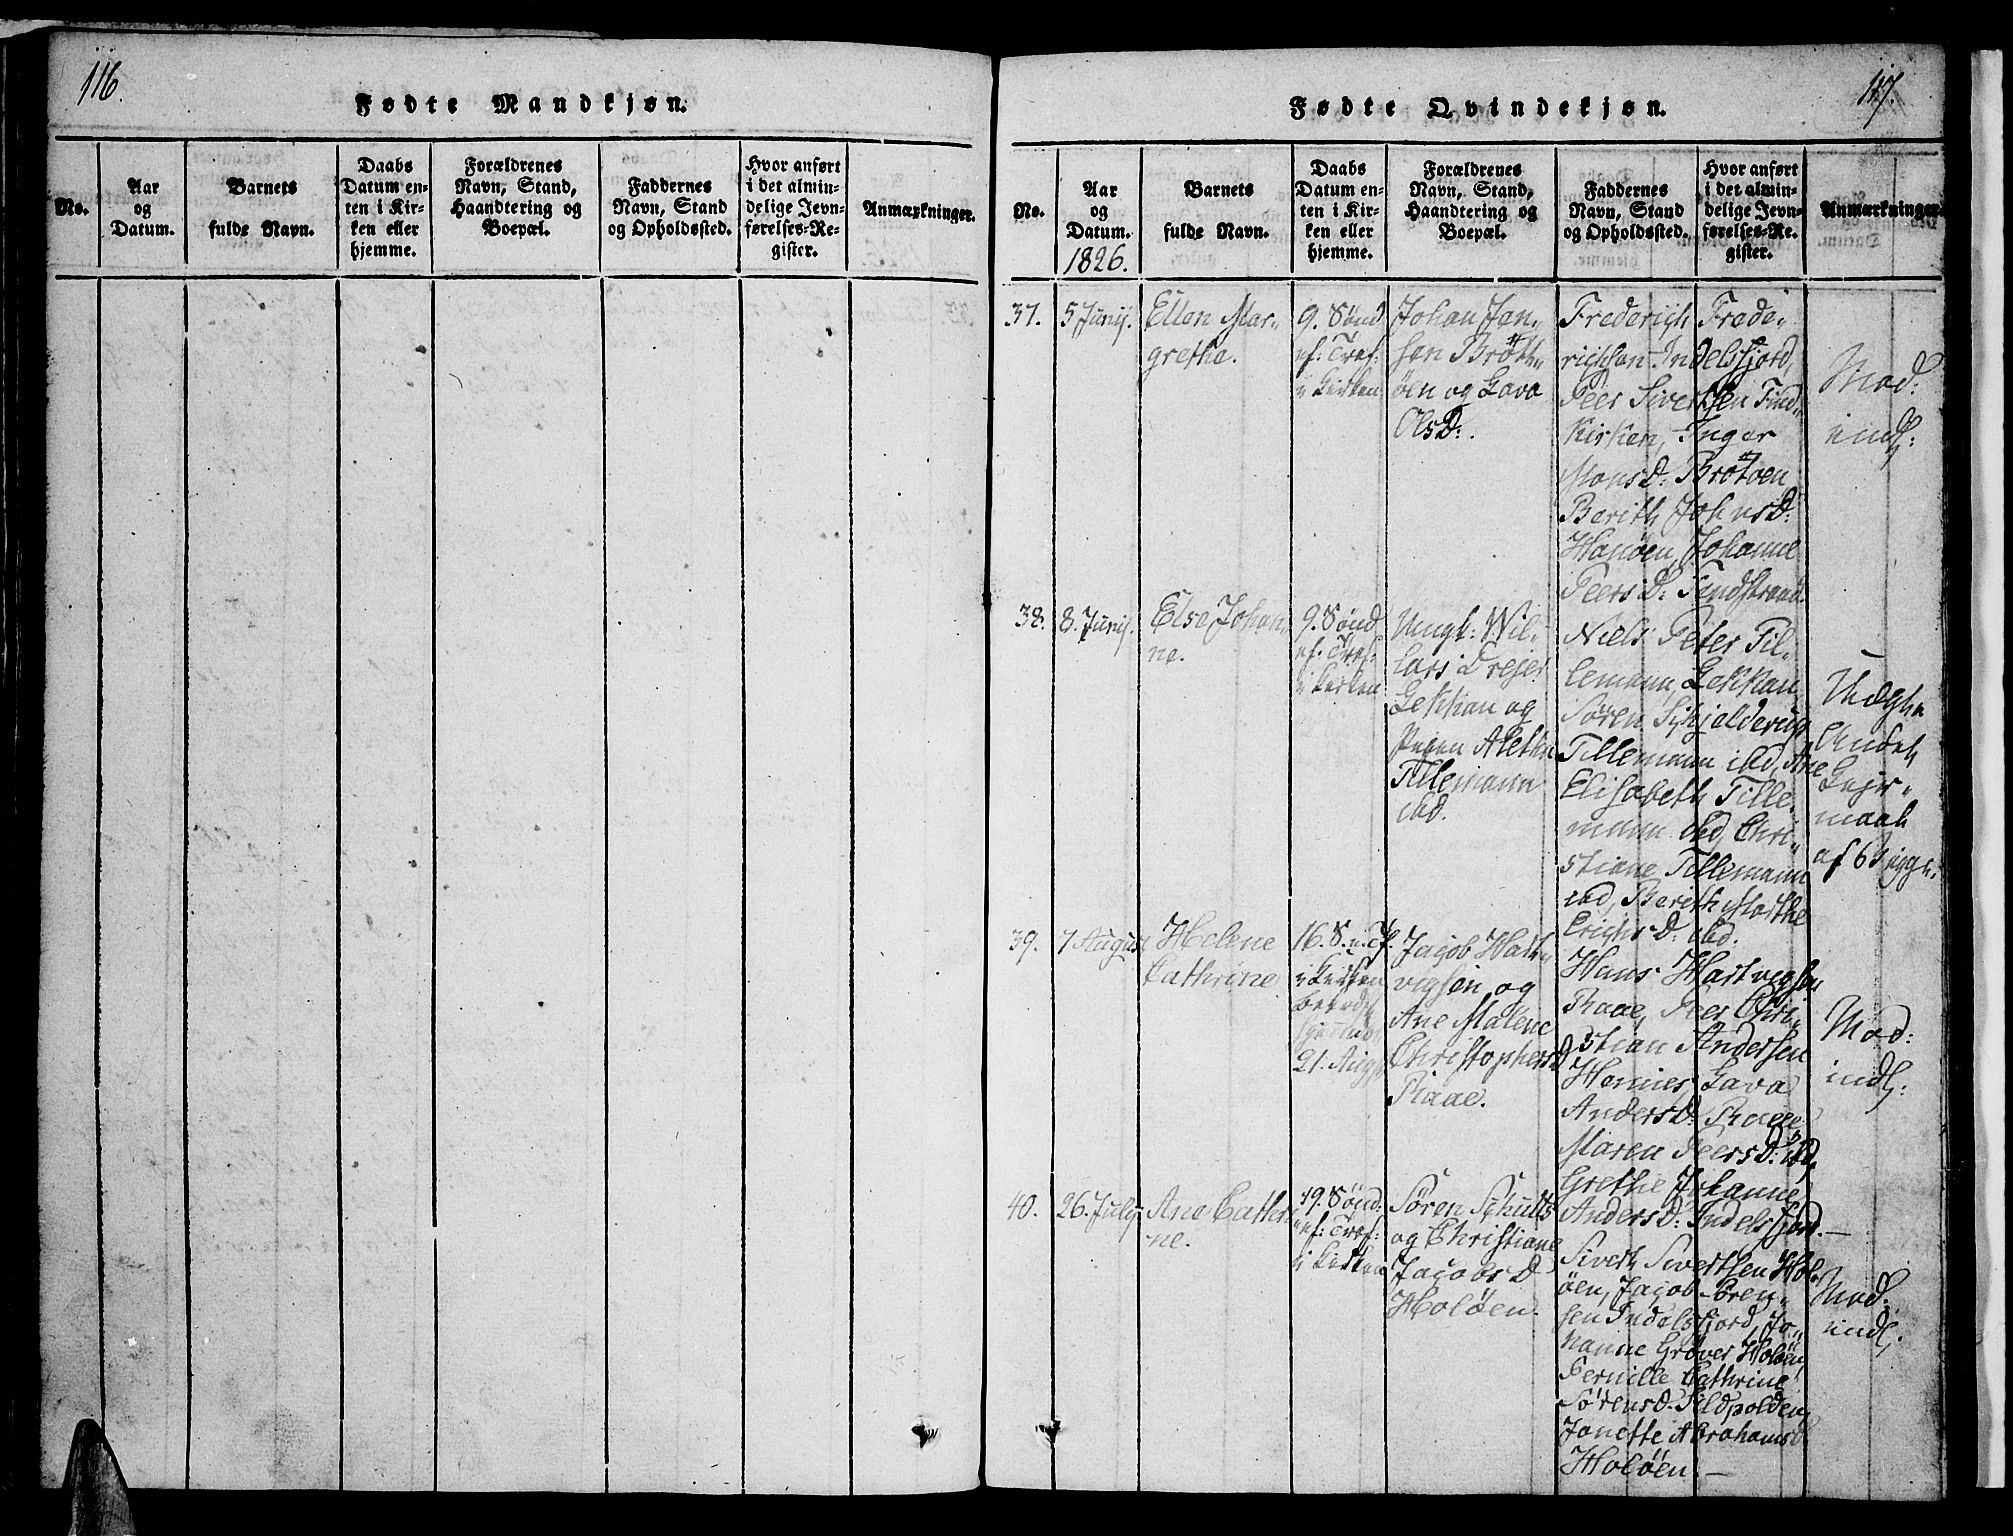 116.
Fødte Mandkjøn.
No.
Aar
og
Datum.
Barnets
fulde Navn.
Daabs
Datum en-
ten i Kir-
ken eller
hjemme.
Forældrenes
Navn, Stand,
Haandtering og
Boepæl.
Faddernes
Navn, Stand
og Opholdssted.
Hvor anført
i det almin-
delige Jevn-
førelses-Re-
gister.
Anmærkninger.
117.
Fødte Qvindekjøn.
No.
Aar
og
Datum.
1826.
Barnets
fulde Navn.
Daabs
Datum en-
ten i Kir-
ken eller
hjemme.
Forældrenes
Navn, Stand,
Haandtering og
Boepæl.
Faddernes
Navn, Stand
og Opholdssted.
Hvor anført
i det almin-
delige Jevn-
førelses-Re-
gister.
Anmærkninger.
37.
5 Junij.
Ellen Mar-
grethe.
9. Sønd
ef: Tref:
i Kirken
Johan Jen-
sen Brøtt-
øen og Lava
OlsD:.
Frederich Frede-
richsen Indelsfjord,
Peer Sivertsen Find-
Kirken, Inger
MonsD: Brøtøen
Berith JohnsD:
Hanøen, Johanne
PeersD: Sandstrand.
Mod:
indl:
38.
8. Junij.
Else Johan-
ne.
9. Sønd
ef: Tref:
i Kirken
Ungk: Wil-
lars Dreyer
Gekkan og
Pigen Alethe
Tillemann
ibd.
Niels Peter Til-
lemann, Gekkan,
Søren Schjelderup
Tillemann ibd, Ane
Elisabeth Tille-
mann ibd, Chri-
stiane Tillemann
ibd, Berith Marthe
ErichsD: ibd.
Uægte
Andet
Leyer-
maal
af begge.
39.
7 August
Helene
Cathrine
16. S. e. Tf.
i Kirken
21. Aug
Jacob Hart-
vigsen og
Ane Malene
ChristophersD
Raae.
Hans Hartvigsen
Raae, Peer Chri-
stian Andersen
Hemnes, Lava
AndersD: Raae
Maren PeersD: ibd,
Grethe Johanne
AndersD: Indelsfjord.—
Mod:
indl:
40.
26. July
Ane Cathri-
ne.
19. Sønd.
ef: Tref:
i Kirken
Søren Schults
og Christiane
JacobsD
Holøen.
Sivert Sivertsen Hol-
øen, Jacob Søren-
sen Indelsfjord, Jo-
hanne Grøver Holøen,
Pernille Cathrine
SørensD. Sildpolden,
Janette AbrahamsD
Holøen.—
Mod:
indl.